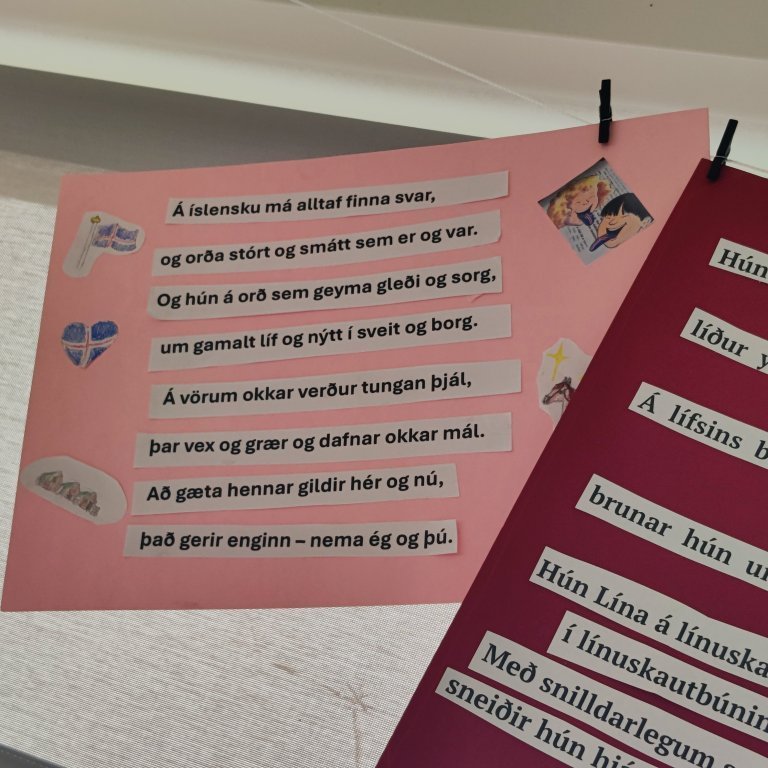 Á íslensku má alltaf finna svar,
og orða stórt og smátt sem er og var.
Og hún á orð sem geyma gleði og sorg,
um gamalt líf og nýtt í sveit og borg.
Á vörum okkar verður tungan þjál,
þar vex og grær og dafnar okkar mál.
Að gæta hennar gildir hér og nú,
það gerir enginn – nema ég og þú.
Hún
líður
Á lífsins
brunar hún
Hún Lína á
í
Með snilldarlegum
sneiðir hún